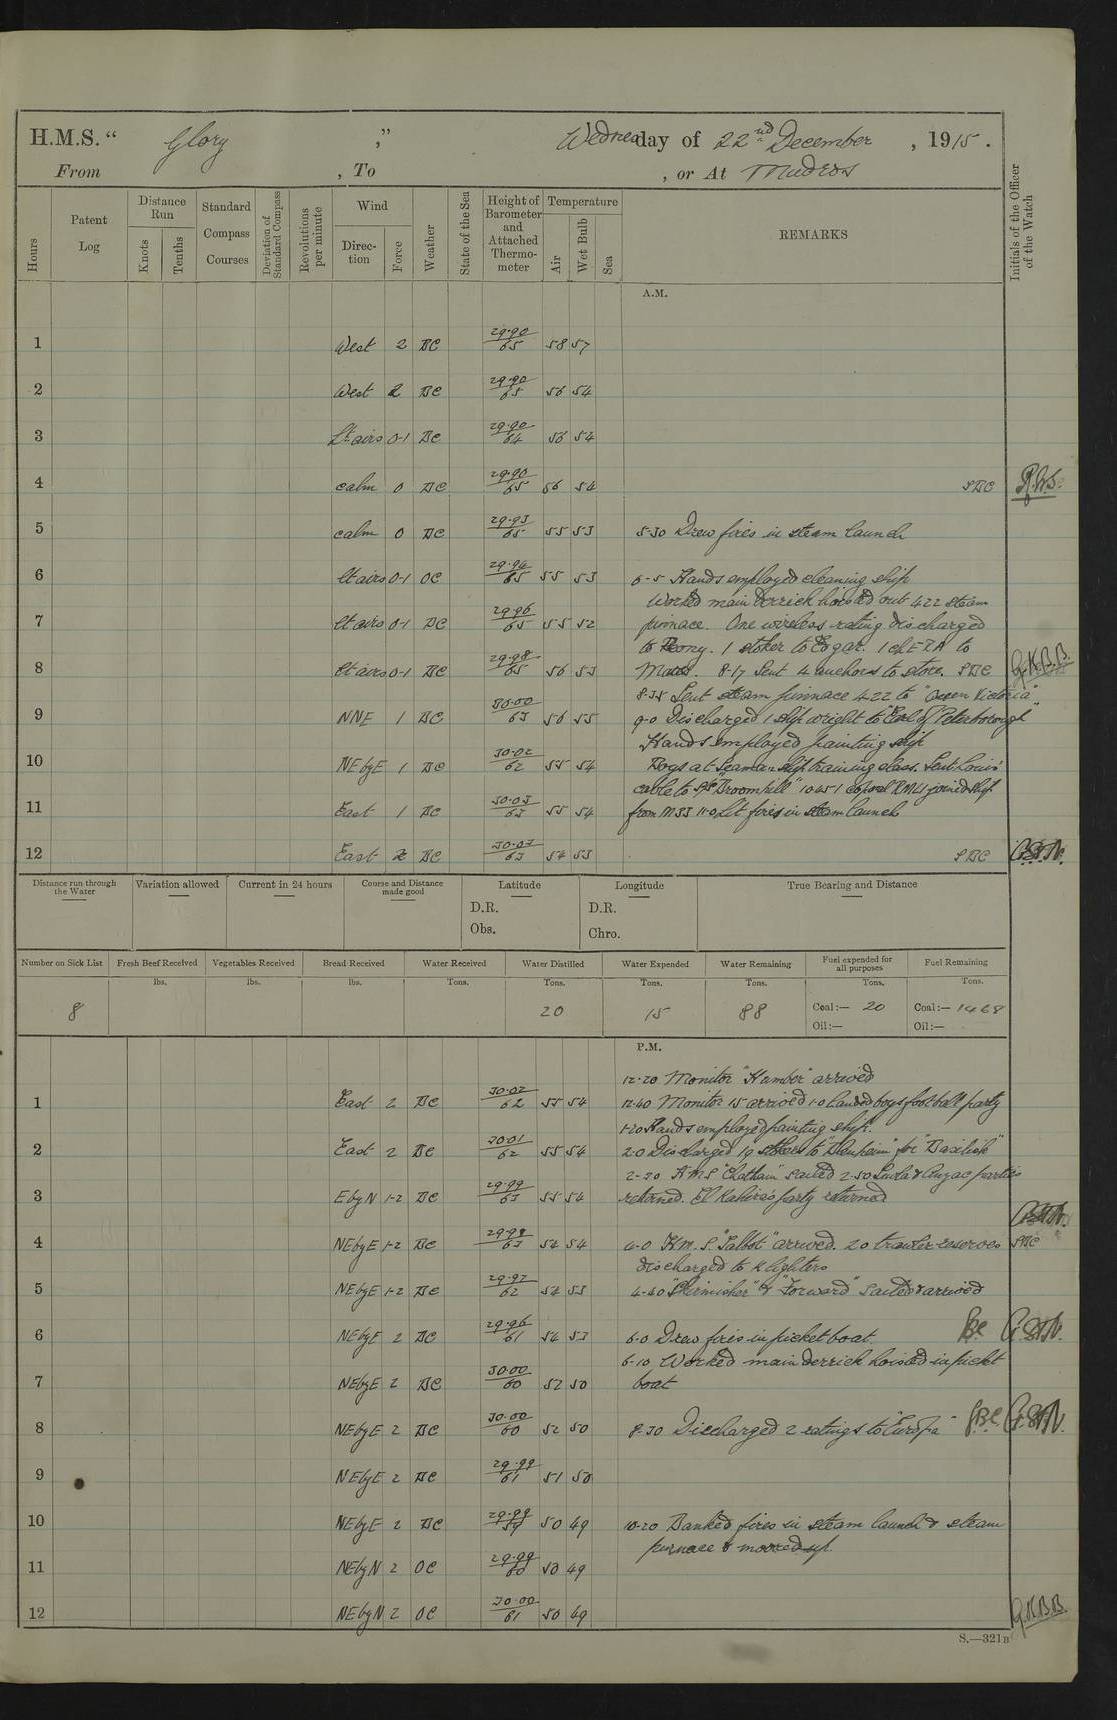 H.M.S. " Glory " Wednesday of 22nd December, 1915.
From , To , or At Mudros
Hours
Patent Log
Distance Run
Knots
Tenths
Standard Compass Courses
Deviation of Standard Compass
Revolutions per minute
Wind
Direction
Force
Weather
State of the Sea
Height of Barometer and Attached Thermometer
Temperature
Air
Wet Bulb
Sea
REMARKS
Initials of the Officer of the Watch
A.M.
1 West 2 BC 29.90/65 58 57
2 West 2 BC 29.90/65 56 54
3 Lt airs 0-1 BC 29.90/64 56 54
4 calm 0 BC 29.90/65 56 54
5 calm 0 BC 29.93/65 55 53 5-30 Drew fires in steam launch
6 Lt airs 0-1 OC 29.94/65 55 53 6-5 Hands employed cleaning ship
Worked main derrick hoisted out 422 steam
7 Lt airs 0-1 BC 29.96/65 55 52 pinnace. One wireless rating discharged
to 1 stoker to Edgar. 1 ch ERA to
8 Lt airs 0-1 BC 29.98/65 56 53 8-17 Sent 4 anchors to store.
8-35 Sent steam pinnace 422 to "Queen Victoria"
9 NNE 1 BC 30.00/63 56 55 9-0 Discharged 1 shipwright to "Earl of Peterborough"
Hands employed painting ship
10 NEbyE 1 BC 30.02/62 55 54 Boys at Seamanship training class. Sent Louis'
cable to SS "Broomhill" 10-45 1 corporal RMLI joined ship
11 East 1 BC 30.03/63 55 54 from M33 11-0 Lit fires in steam launch
12 East 2 BC 30.03/63 54 53
Distance run through the Water
Variation allowed
Current in 24 hours
Course and Distance made good
Latitude
D.R.
Obs.
Longitude
D.R.
Chro.
True Bearing and Distance
Number on Sick List
Fresh Beef Received
Vegetables Received
Bread Received
Water Received
Water Distilled
Water Expended
Water Remaining
Fuel expended for all purposes
Fuel Remaining
lbs. lbs. lbs. Tons. Tons. Tons. Tons. Tons. Tons.
8 20 15 88 Coal:— 20 Coal:— 1468
Oil:— Oil:—
P.M.
12-20 Monitor "Humber" arrived
1 East 2 BC 30.02/62 55 54 12-40 Monitor 15 arrived 1-0 Landed boys football party
1-20 Hands employed painting ship.
2 East 2 BC 30.01/62 55 54 2-0 Discharged 19 stokers to "Blenheim" for "Basilisk"
2-30 HMS "Chatham" sailed 2-50 Suvla & Anzac parties
3 EbyN 1-2 BC 29.99/63 55 54 returned. El Kahira's party returned
4 NEbyE 1-2 BC 29.98/63 54 54 4-0 H.M.S. "Talbot" arrived. 20 trawler reserves
discharged to K lighters
5 NEbyE 1-2 BC 29.97/62 54 53 4-40 "Skirmisher" & "Forward" sailed & arrived
6 NEbyE 2 BC 29.96/61 54 53 6-0 Drew fires in picket boat.
6-10 Worked main derrick hoisted in picket
7 NEbyE 2 BC 30.00/60 52 50 boat
8 NEbyE 2 BC 30.00/60 52 50 8-30 Discharged 2 ratings to "Europa"
9 NEbyE 2 BC 29.99/61 51 50
10 NEbyE 2 BC 29.99/59 50 49 10-20 Banked fires in steam launch & steam
pinnace & moored up.
11 NEbyN 2 OC 29.99/60 50 49
12 NEbyN 2 OC 30.00/61 50 49
S.—321B